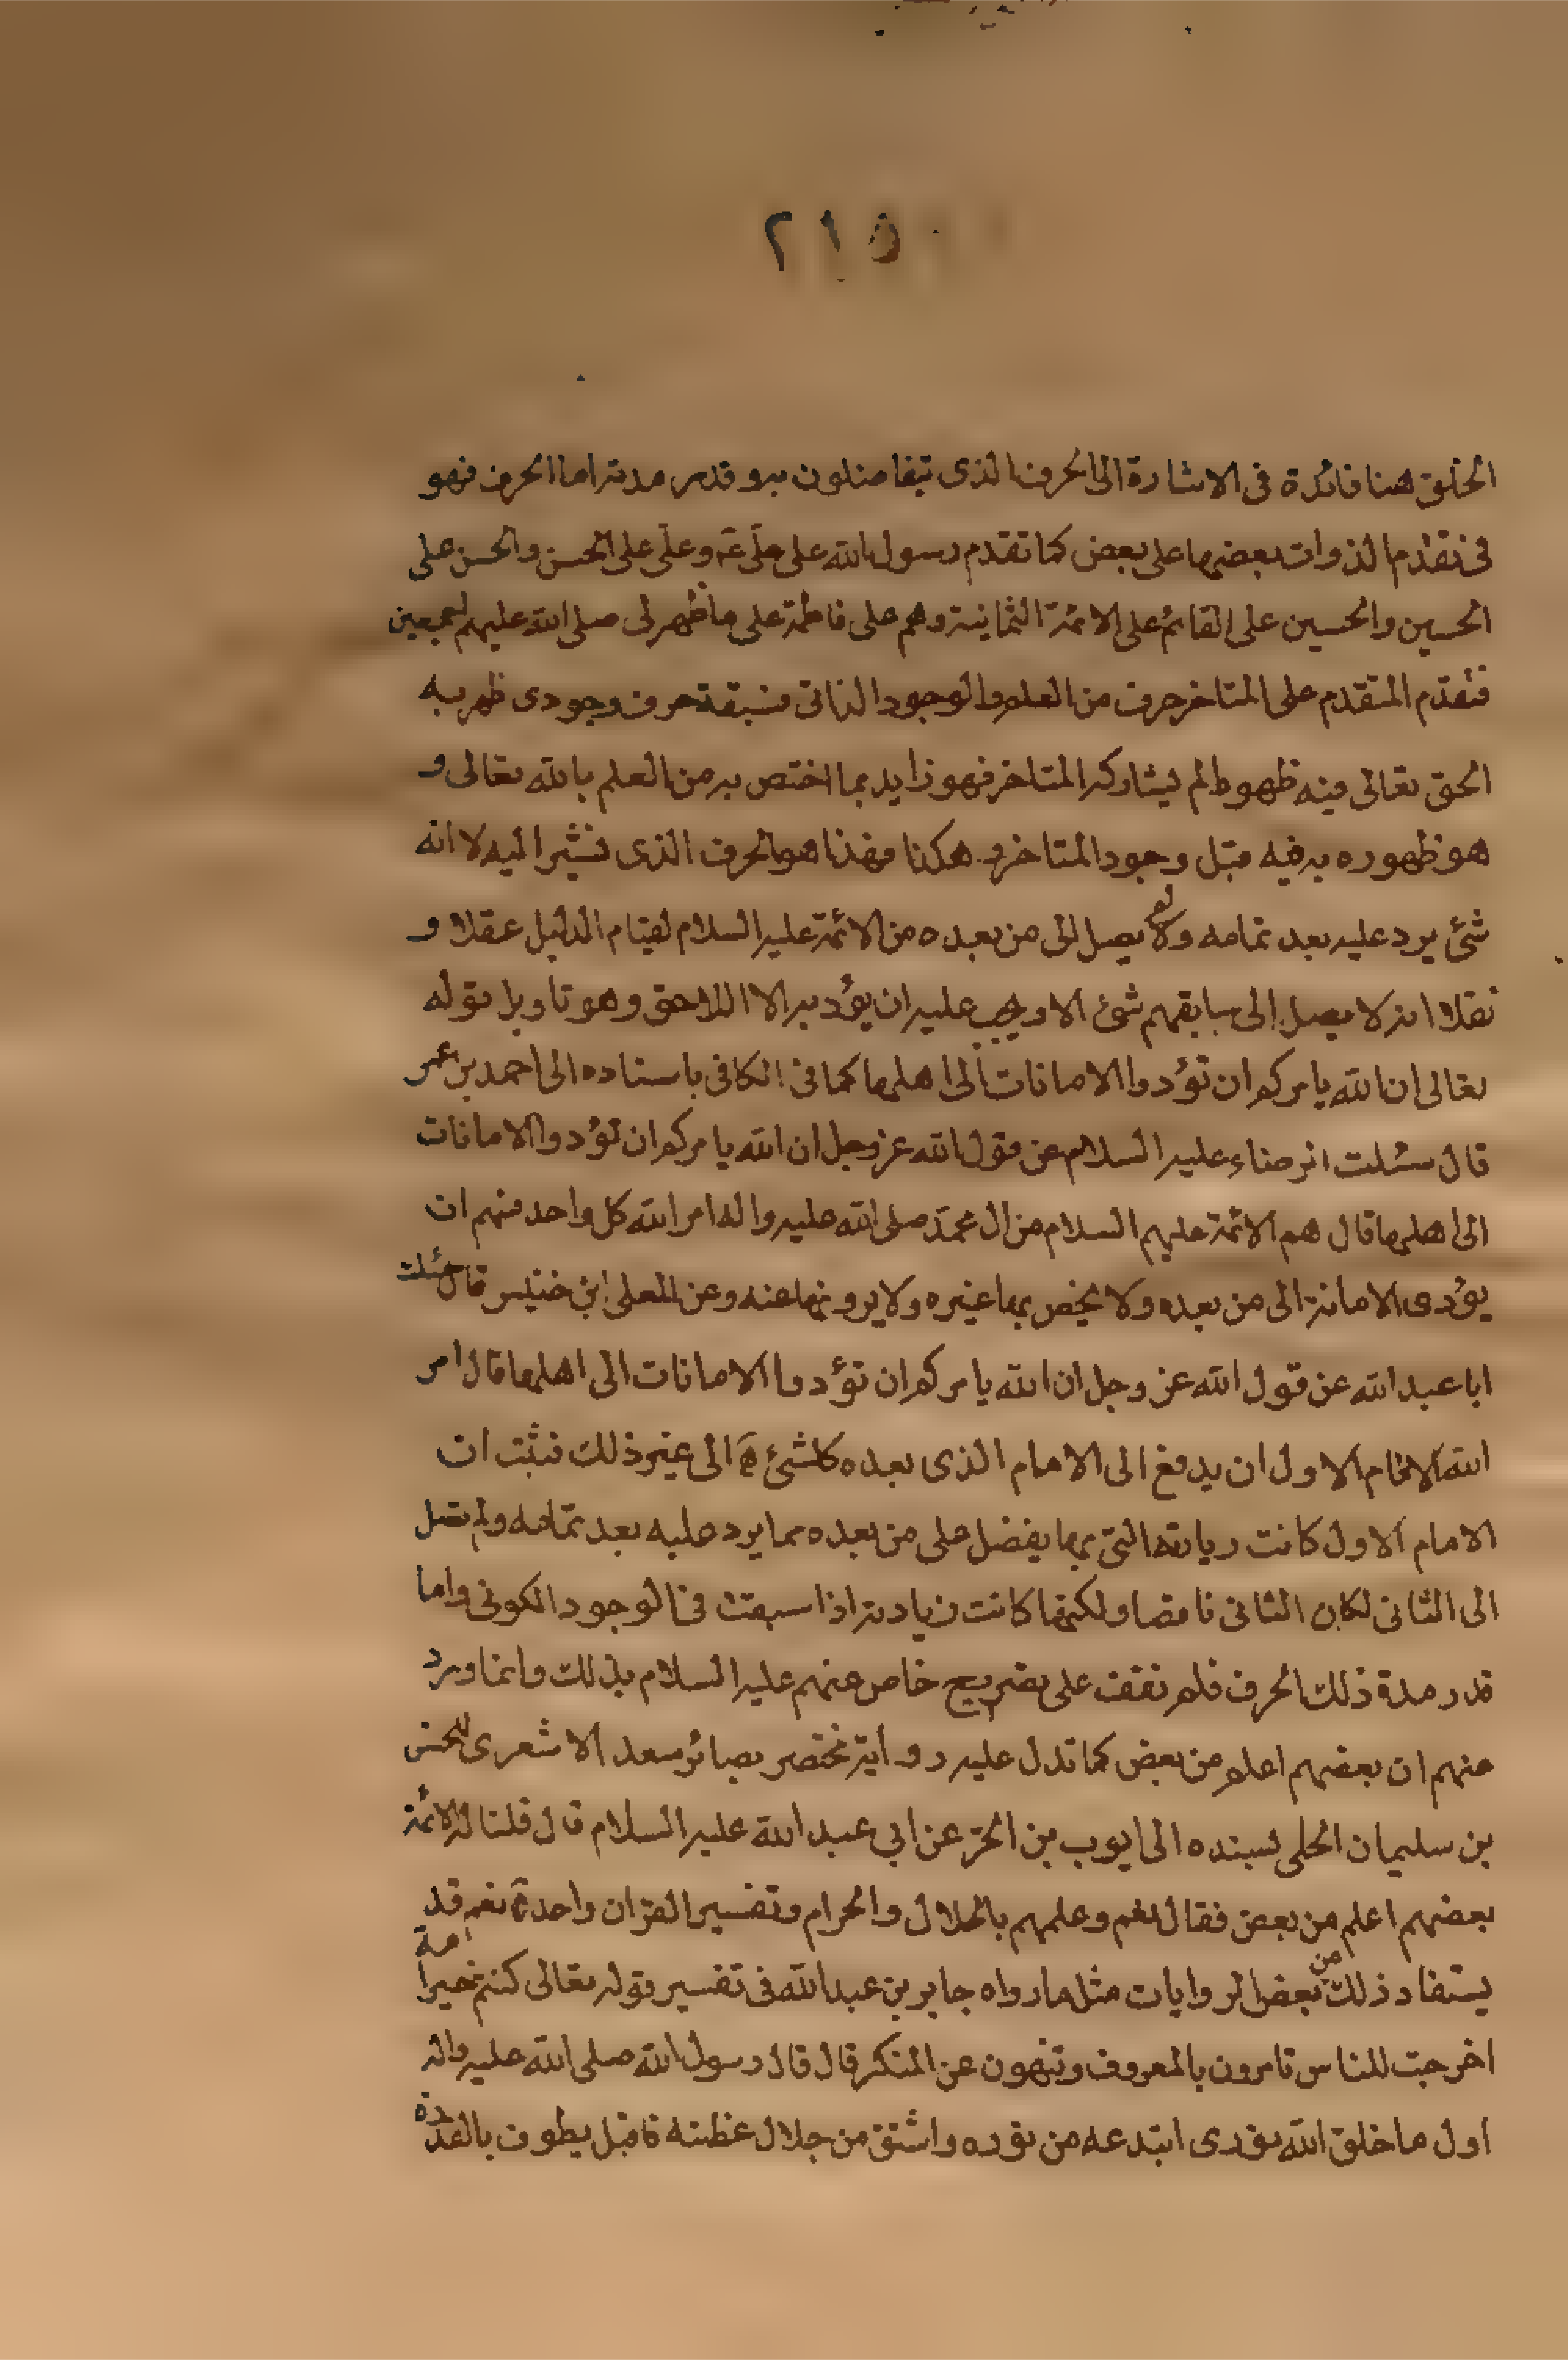 ٢١٥
الخلق هنا فائدة فى الاشارة الى الحرف الذى تتفاضلون به وقدر مدته اما الحرف فهو
فى تقدم الذوات بعضها على بعض كما تقدم رسول الله على علّى عَ وعلّى على الحسن والحسن على
الحسين والحسين على القائم على الائمة الثمانية وهم على فاطمة على ما ظهر لى صلى الله عليهم اجمعين
فتقدم المتقدم على المتاخر حرف من العلم والوجود الذاتى فسبقة حرف وجودى ظهر به
الحق تعالى فيه ظهورا لم يشاركه المتاخر فهو زايد بما اختص به من العلم بالله تعالى و
هو ظهوره به فيه قبل وجود المتاخر و هكذا فهذا هو الحرف الذى نشير اليه لا انه
شئ يرد عليه بعد تمامه ولا يصل الى من بعده من الائمة عليه السلام لقيام الدليل عقلا و
نقلا انه لا يصل الى سابقهم شئ الا ويجب عليه ان يؤديه الا اللاحق وهو تاويل قوله
تعالى ان الله يامركم ان تؤدوا الامانات الى اهلها كما فى الكافى باسناده الى احمد بن عمر
قال سئلت الرضاء عليه السلام عن قول الله عز وجل ان الله يامركم ان تؤدوا الامانات
الى اهلها قال هم الائمة عليهم السلام من ال محمّد صلى الله عليه واله امر الله كل واحد منهم ان
يؤدى الامانة الى من بعده ولا يخص بها غيره ولا يرويها عنه وعن المعلى ابن خنيس قال سئلت
ابا عبد الله عن قول الله عز وجل ان الله يامركم ان تؤدوا الامانات الى اهلها قال امر
الله الامام الاول ان يدفع الى الامام الذى بعده كلشئ الى غير ذلك فثبت ان
الامام الاول كانت زيادته التى بها يفضل على من بعده مما يرد عليه بعد تمامه ولم تصل
الى الثانى لكان الثانى ناقصا ولكنها كانت زيادته اذا سبقت فى الوجود الكونى واما
قدر مدة ذلك الحرف فلم نقف على تصريح خاص عنهم عليه السلام بذلك وانما ورد
عنهم ان بعضهم اعلم من بعض كما تدل عليه رواية مختصر بصائر سعد الاشعرى للحسن
بن سليمان الحلى بسنده الى ايوب بن الحرّ عن ابي عبد الله عليه السلام قال قلنا له الائمة
بعضهم اعلم من بعض فقال نعم وعلمهم بالحلال والحرام وتفسير القرآن واحدة نعم قد
يستفاد ذلك من بعض الروايات مثل ما رواه جابر بن عبد الله فى تفسير قوله تعالى كنتم خير امة
اخرجت للناس تامرون بالمعروف وتنهون عن المنكر قال قال رسول الله صلى الله عليه واله
اول ما خلق الله نورى ابتدعه من نوره واشتق من جلال عظمته فاقبل يطوف بالقدرة